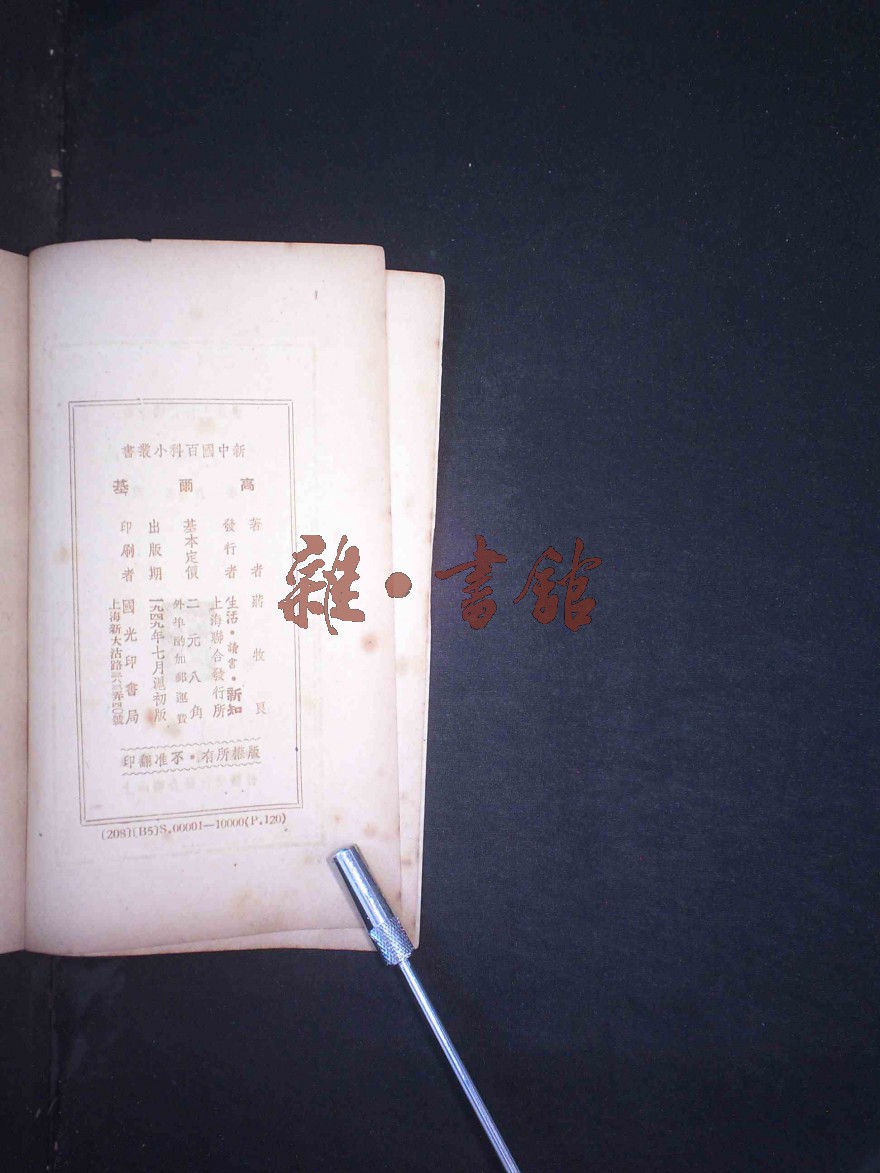 新中國百科小叢書
高爾基
著者 蔣牧良
發行者 生活·讀書·新知
上海聯合發行所
基本定價 二元八角
外埠酌加郵運費
出版期 一九四九年七月滬初版
印刷者 國光印書局
上海新大沽路
版權所有·不准翻印
(208)(B5)S.00001—10000(P.120)
雜·書館